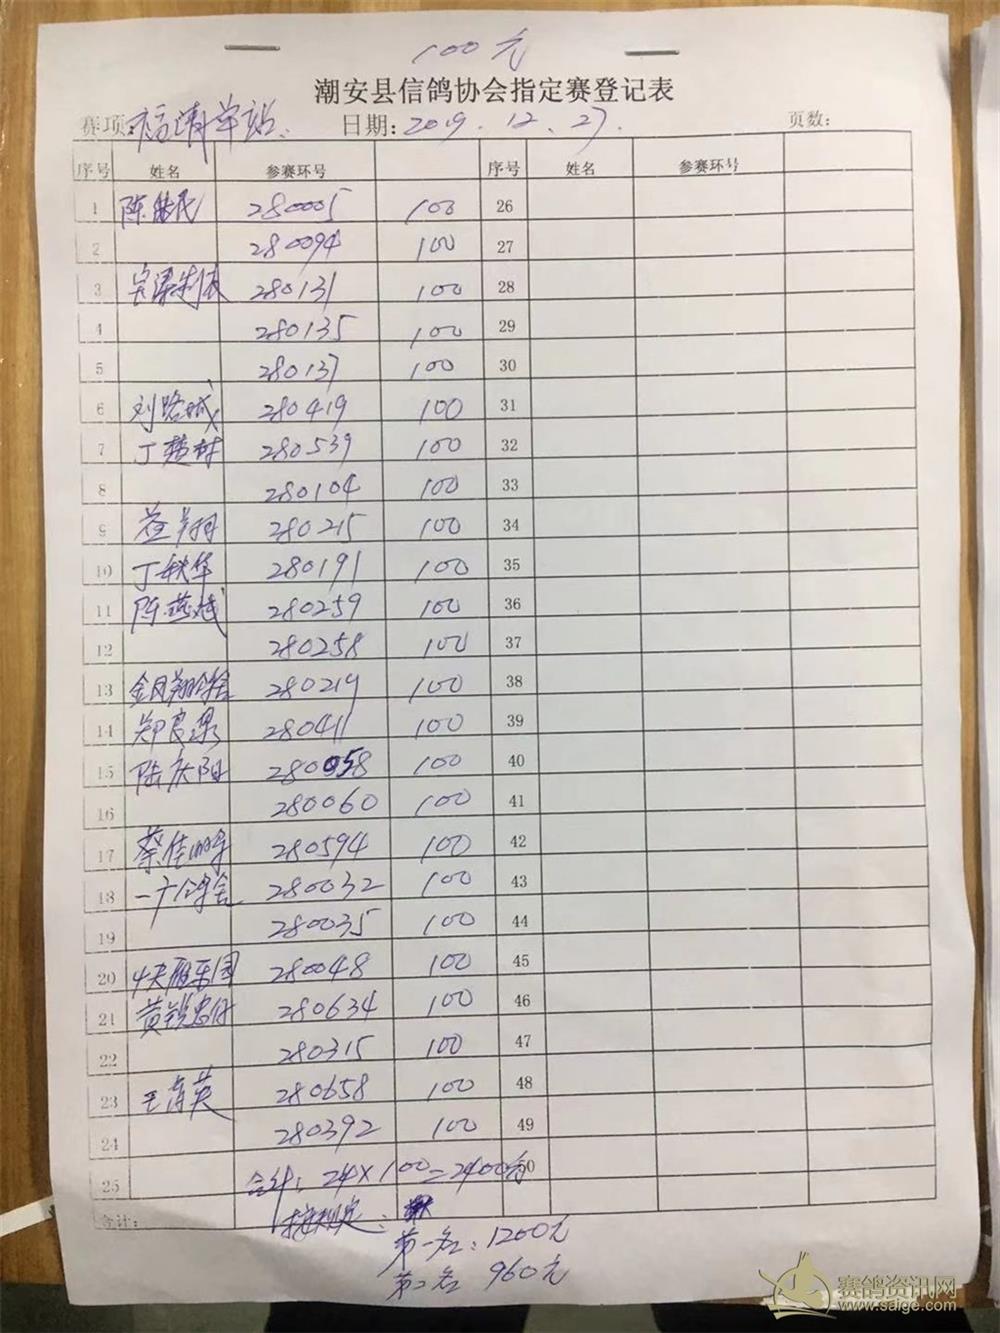 100元
潮安县信鸽协会指定赛登记表
赛项:福清单站. 日期:2019.12.27. 页数:
序号 姓名 参赛环号 序号 姓名 参赛环号
1 280005 100 26
2 280094 100 27
3 280131 100 28
4 280135 100 29
5 280137 100 30
6 刘路城 280419 100 31
7 丁楚树 280539 100 32
8 280104 100 33
9 280215 100 34
10 丁秋华 280191 100 35
11 陈燕斌 280259 100 36
12 280258 100 37
13 金凤翔鸽舍 280219 100 38
14 郑良 280411 100 39
15 陆庆阳 280058 100 40
16 280060 100 41
17 蔡佳 280594 100 42
18 一广鸽舍 280032 100 43
19 280035 100 44
20 280048 100 45
21 280634 100 46
22 280315 100 47
23 280658 100 48
24 280392 100 49
25 合计:24×100=2400元 50
合计: 按规定:
第一名:1200元
第二名 960元
赛鸽资讯网
www.saige.com